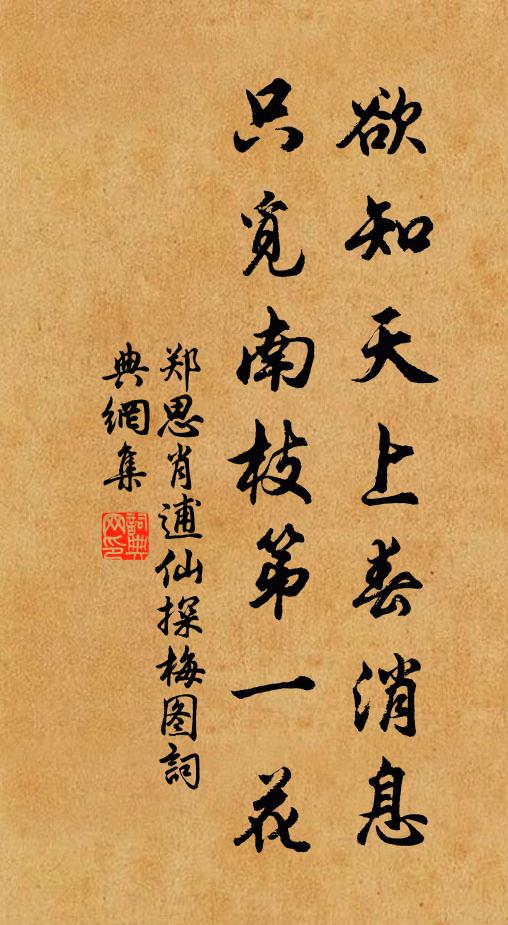 欲知天上春消息
只觅南枝第一花
郑思肖逋仙探梅图詞
典網集
詞典
网印